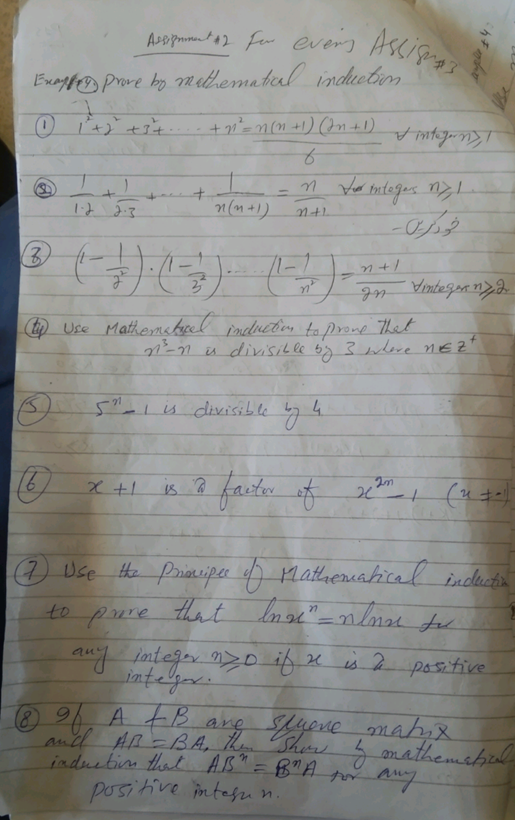 Assignment #2 For evening Assign #3
prove by mathematical induction
① 1² + 2² + 3² + ..... + n² = n(n+1)(2n+1) / 6 ∀ integer n ≥ 1
② 1/1·2 + 1/2·3 + .... + 1/n(n+1) = n/n+1 ∀ integers n ≥ 1.
③ (1 - 1/2²) · (1 - 1/3²) .... (1 - 1/n²) = n+1/2n ∀ integers n ≥ 2
④ Use Mathematical induction to prove that
n³-n is divisible by 3 where n ∈ Z⁺
⑤ 5ⁿ - 1 is divisible by 4
⑥ x + 1 is a factor of x²ⁿ - 1
⑦ Use the Principle of Mathematical induction
to prove that ln xⁿ = n ln x for
any integer n ≥ 0 if x is a positive
integer.
⑧ If A & B are square matrix
and AB = BA, then show by mathematical
induction that ABⁿ = BⁿA for any
positive integer n.